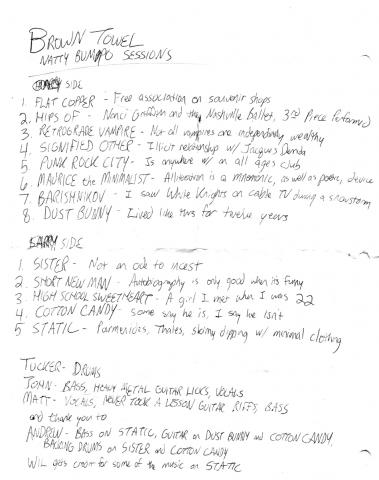 BROWN TOWEL
NATTY BUMPO SESSIONS
SIDE
1. FLAT COPPER - Free association on souvenir shops
2. HIPS OF - Nanci Griffith and the Nashville Ballet, 3rd Piece Performed
3. RETROGRADE VAMPIRE - Not all vampires are independently wealthy
4. SIGNIFIED OTHER - Illicit relationship w/ Jacques Derrida
5. PUNK ROCK CITY - Is anywhere w/ an all ages club
6. MAURICE the MINIMALIST - Alliteration is a mnemonic, as well as poetic, device
7. BARISHNIKOV - I saw White Knights on cable TV during a snowstorm
8. DUST BUNNY - Lived like this for twelve years
SIDE
1. SISTER - Not an ode to incest
2. SHORT NEW MAN - Autobiography is only good when its funny
3. HIGH SCHOOL SWEETHEART - A girl I met when I was 22
4. COTTON CANDY - some say he is, I say he isn't
5 STATIC - Parmenides, Thales, skinny dipping w/ minimal clothing
TUCKER - DRUMS
JOHN - BASS, HEAVY METAL GUITAR LICKS, VOCALS
MATT - VOCALS, NEVER TOOK A LESSON GUITAR RIFFS, BASS
and thank you to
ANDREW - BASS ON STATIC, GUITAR on DUST BUNNY and COTTON CANDY,
BACKING DRUMS on SISTER and COTTON CANDY
WIL gets credit for some of the music on STATIC